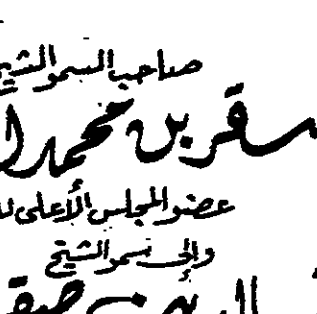 صاحب السمو الشيخ
صقر بن محمد ا
عضو المجلس الأعلى لل
وإلى سمو الشيخ